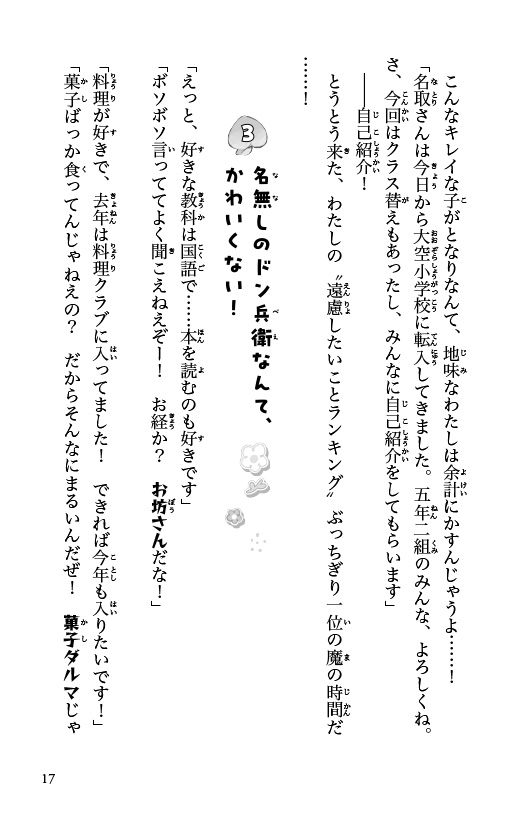 こんなキレイな子がとなりなんて、地味なわたしは余計にかすんじゃうよ……！
「名取さんは今日から大空小学校に転入してきました。五年二組のみんな、よろしくね。
さ、今回はクラス替えもあったし、みんなに自己紹介をしてもらいます」
――自己紹介！
とうとう来た、わたしの〝遠慮したいことランキング〟ぶっちぎり一位の魔の時間だ
……！
3
名無しのドン兵衛なんて、
かわいくない！
「えっと、好きな教科は国語で……本を読むのも好きです」
「ボソボソ言っててよく聞こえねえぞー！　お経か？　お坊さんだな！」
「料理が好きで、去年は料理クラブに入ってました！　できれば今年も入りたいです！」
「菓子ばっか食ってんじゃねえの？　だからそんなにまるいんだぜ！　菓子ダルマじゃ
17